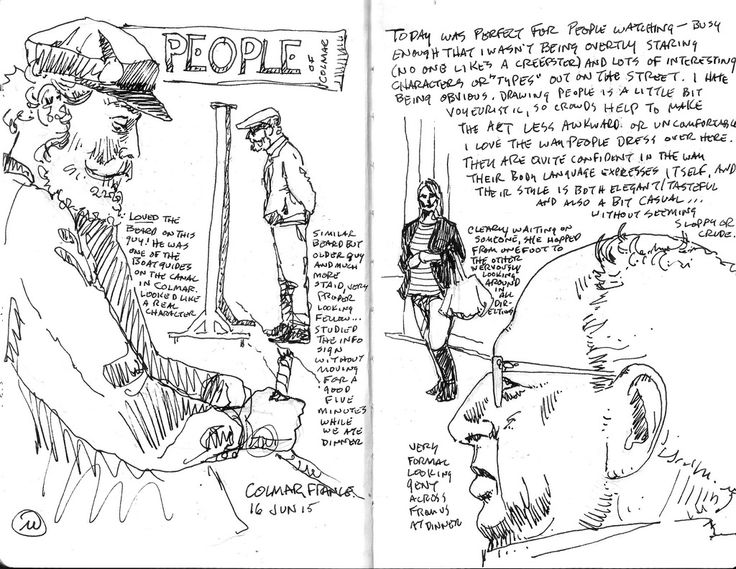 PEOPLE
of
COLMAR
LOVED THE
BEARD ON THIS
GUY! HE WAS
ONE OF THE
BOAT GUIDES
ON THE CANAL
IN COLMAR.
LOOKED LIKE
A REAL
CHARACTER
SIMILAR
BEARD BUT
OLDER GUY
AND MUCH
MORE
STAID, VERY
PROPER
LOOKING
FELLOW...
STUDIED
THE INFO
SIGN
WITHOUT
MOVING
FOR A
GOOD
FIVE
MINUTES
WHILE
WE ATE
DINNER
COLMAR, FRANCE
16 JUN 15
TODAY WAS PERFECT FOR PEOPLE WATCHING — BUSY
ENOUGH THAT I WASN'T BEING OVERTLY STARING
(NO ONE LIKES A CREEPSTER) AND LOTS OF INTERESTING
CHARACTERS OR "TYPES" OUT ON THE STREET. I HATE
BEING OBVIOUS. DRAWING PEOPLE IS A LITTLE BIT
VOYEURISTIC, SO CROWDS HELP TO MAKE
THE ART LESS AWKWARD OR UNCOMFORTABLE
I LOVE THE WAY PEOPLE DRESS OVER HERE.
THEY ARE QUITE CONFIDENT IN THE WAY
THEIR BODY LANGUAGE EXPRESSES ITSELF, AND
THEIR STYLE IS BOTH ELEGANT/TASTEFUL
AND ALSO A BIT CASUAL...
WITHOUT SEEMING
SLOPPY OR
CRUDE.
CLEARLY WAITING ON
SOMEONE, SHE HOPPED
FROM ONE FOOT TO
THE OTHER
NERVOUSLY
LOOKING
AROUND
IN
ALL
DIR-
ECTIONS
VERY
FORMAL
LOOKING
GENT
ACROSS
FROM US
AT DINNER